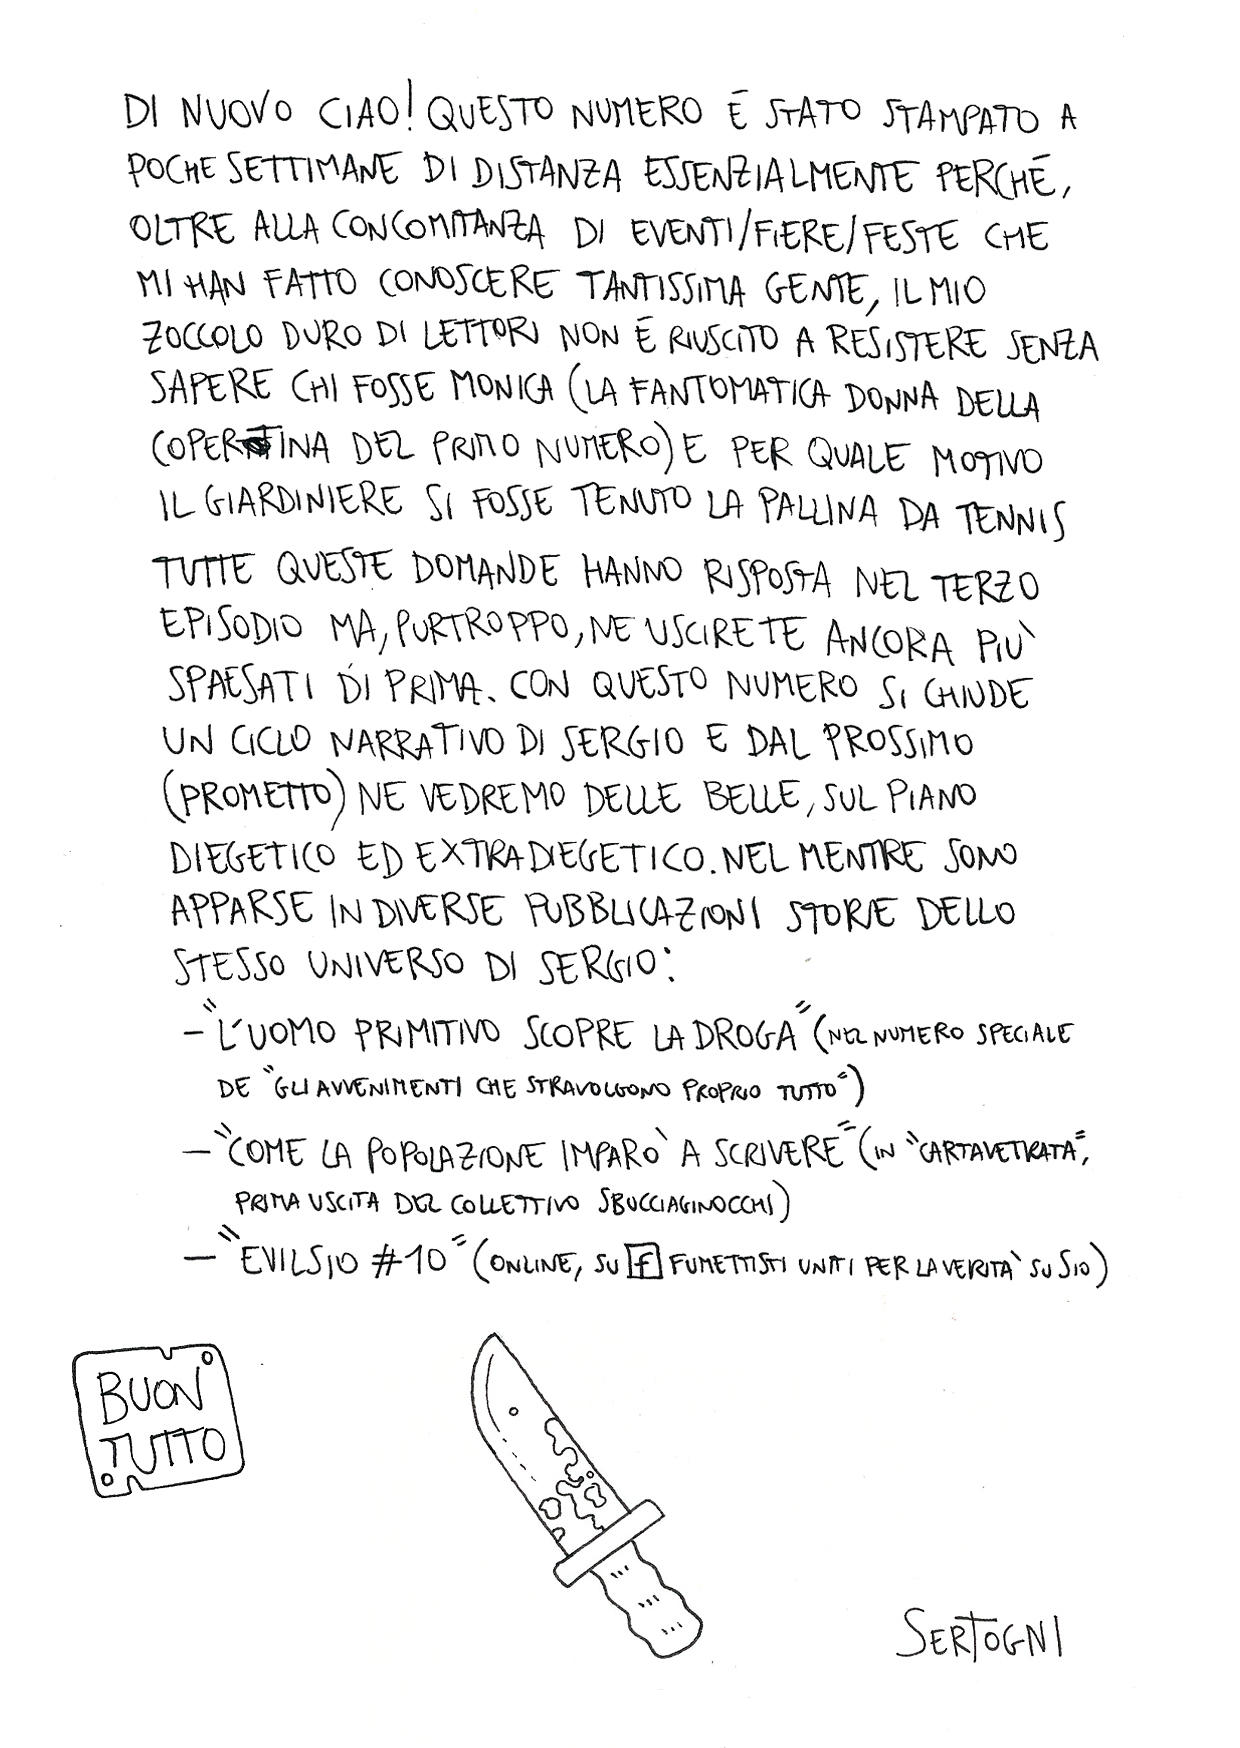 DI NUOVO CIAO! QUESTO NUMERO É STATO STAMPATO A
POCHE SETTIMANE DI DISTANZA ESSENZIALMENTE PERCHÉ,
OLTRE ALLA CONCOMITANZA DI EVENTI/FIERE/FESTE CHE
MI HAN FATTO CONOSCERE TANTISSIMA GENTE, IL MIO
ZOCCOLO DURO DI LETTORI NON É RIUSCITO A RESISTERE SENZA
SAPERE CHI FOSSE MONICA (LA FANTOMATICA DONNA DELLA
COPERTINA DEL PRIMO NUMERO) E PER QUALE MOTIVO
IL GIARDINIERE SI FOSSE TENUTO LA PALLINA DA TENNIS
TUTTE QUESTE DOMANDE HANNO RISPOSTA NEL TERZO
EPISODIO MA, PURTROPPO, NE USCIRETE ANCORA PIÙ
SPAESATI DI PRIMA. CON QUESTO NUMERO SI CHIUDE
UN CICLO NARRATIVO DI SERGIO E DAL PROSSIMO
(PROMETTO) NE VEDREMO DELLE BELLE, SUL PIANO
DIEGETICO ED EXTRADIEGETICO. NEL MENTRE SONO
APPARSE IN DIVERSE PUBBLICAZIONI STORIE DELLO
STESSO UNIVERSO DI SERGIO:
- "L'UOMO PRIMITIVO SCOPRE LA DROGA" (NEL NUMERO SPECIALE
DE "GLI AVVENIMENTI CHE STRAVOLGONO PROPRIO TUTTO")
- "COME LA POPOLAZIONE IMPARÒ A SCRIVERE" (IN "CARTAVETRATA",
PRIMA USCITA DEL COLLETTIVO SBUCCIAGINOCCHI)
- "EVILSIO #10" (ONLINE, SU f FUMETTISTI UNITI PER LA VERITÀ SU SIO)
BUON
TUTTO
SERTOGNI